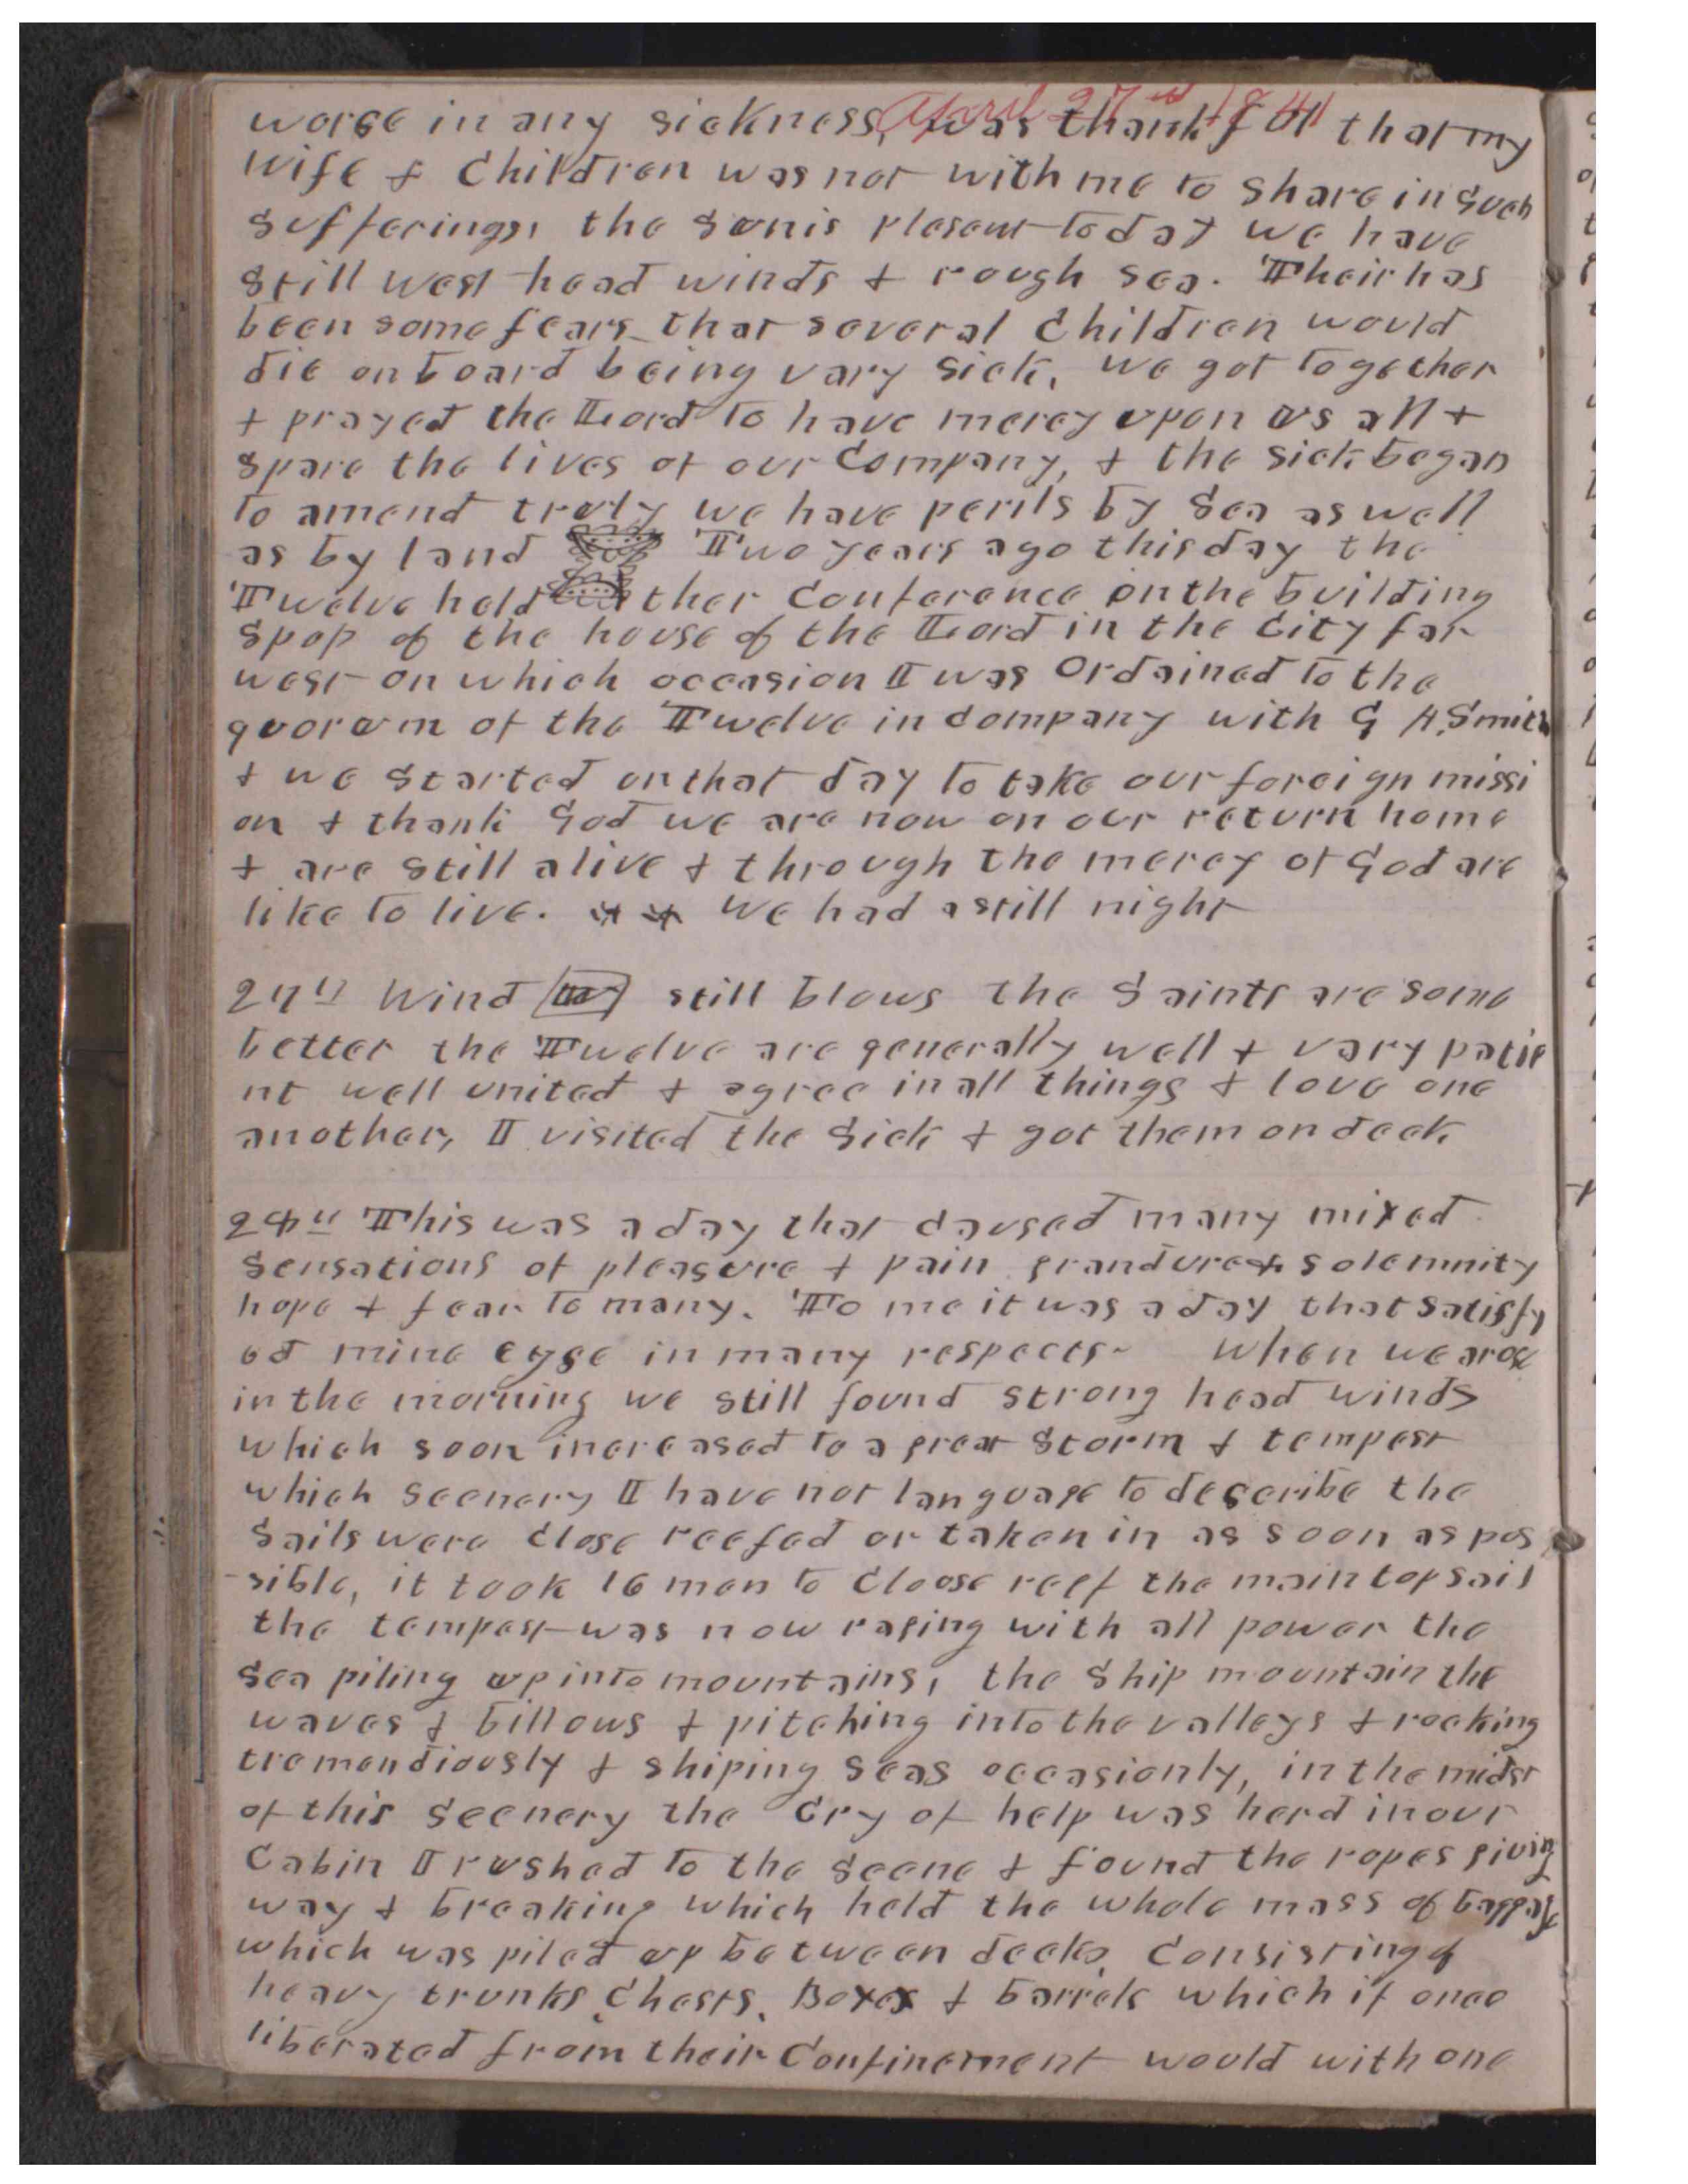 April 27th 1841
worse in any sickness, was thankful that my
wife & Children was not with me to share in such
sufferings, the sun is plesent to day we have
still west head winds & rough sea. Their has
been some fears that several Children would
die on board being vary sick, we got together
& prayed the Lord to have mercy upon us all &
spare the lives of our Company, & the sick began
to amend truly we have perils by Sea as well
as by land Two years ago this day the
Twelve held ther Conference on the building
spop of the house of the Lord in the City far
west on which occasion I was Ordained to the
quorum of the Twelve in Company with G A. Smith
& we started on that day to take our foreign missi
on & thank God we are now on our return home
& are still alive & through the mercy of God are
like to live. We had a still night
27th Wind still blows the Saints are some
better the Twelve are generally well & vary patie
nt well united & agree in all things & love one
another, I visited the Sick & got them on deck
28th This was a day that Caused many mixed
sensations of pleasure & pain grandure & solemnity
hope & fear to many. To me it was a day that satisfy
ed mine eyse in many respects- When we arose
in the morning we still found strong head winds
which soon increased to a great storm & tempest
which scenery I have not language to describe the
sails were Close reefed or taken in as soon as pos
-sible, it took 16 men to Cloose reef the main top sail
the tempest was now raging with all power the
sea piling up into mountains, the ship mountain the
waves & billows & pitching into the valleys & rocking
tremendiously & shiping seas occasionly, in the midst
of this scenery the Cry of help was herd in our
Cabin I rushed to the scene & found the ropes giving
way & breaking which held the whole mass of baggage
which was piled up between decks, Consisting of
heavy trunks, Chests, Boxes & barriels which if once
liberated from their Confinement would with one